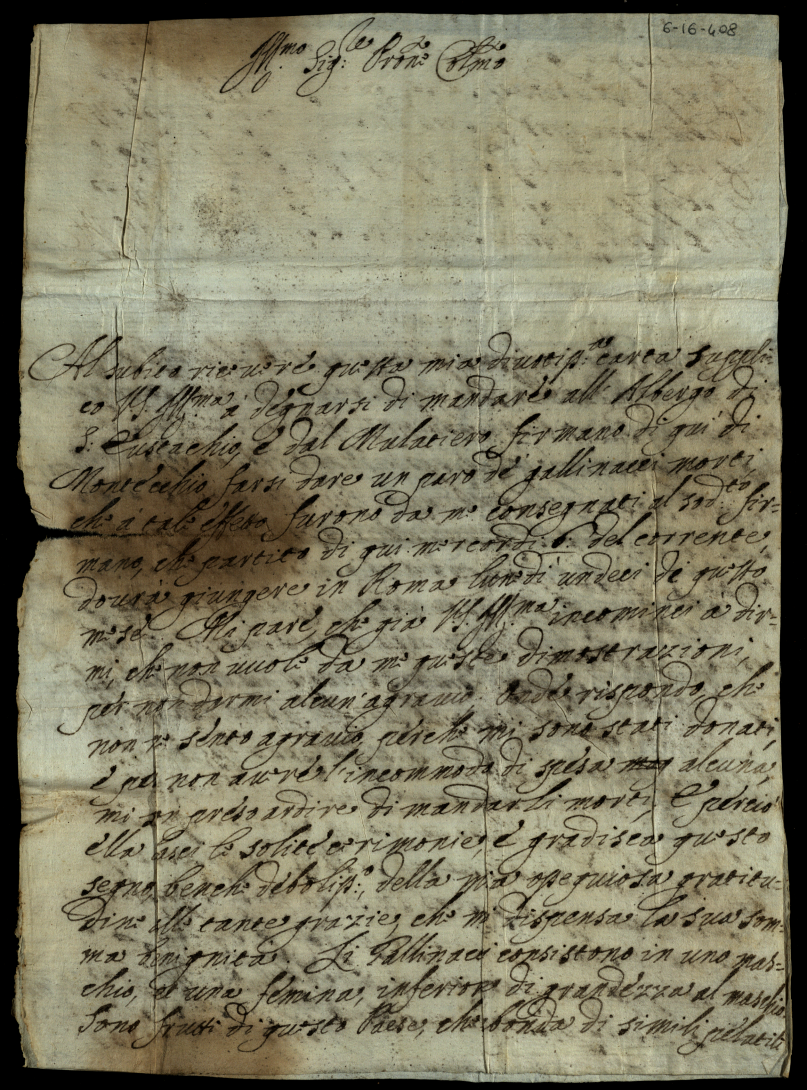 6-16-408
Ill.mo Sig.re Pron.e Col.mo
Al subito riceuere questa mia diuotiss.ma carta suppli=
co V.S. Ill.ma à degnarsi di mandare all' Albergo di
S. Eustachio, e dal Mulatiero firmano di quì di
Montecchio farsi dare un paro de gallinacci morti,
che à tal' effetto furono da me consegnati al sod.to fir=
mano, che partito di quì mercordì 6. del corrente,
dourà giungere in Roma lunedì undeci di questo
mese. Mi pare, che già V.S. Ill.ma incominci à dir=
mi, che non uuole da me queste dimostrazioni,
per non darmi alcun' agrauio. Onde rispondo, che
non ne sento agrauio, perche mi sono stati donati,
e per non auere l'incommodo di spesa alcuna,
mi preso ardire di mandarli morti, e perciò
ella lasci le solite cerimonie, e gradisca questo
segno, benche deboliss.o, della mia ossequiosa gratitu=
dine alle tante grazie, che mi dispensa la sua som=
ma benignità. Li Gallinacci consistono in uno mas=
chio, et una femina, inferiore di grandezza al maschio
sono frutti di questo Paese, che abonda di simili uolatili